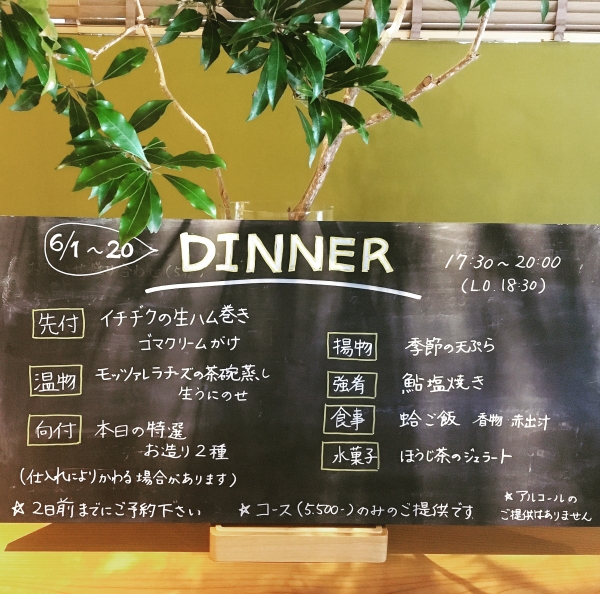 6/1～20
DINNER
17:30～20:00
(L.O. 18:30)
先付 イチヂクの生ハム巻き
ゴマクリームがけ
温物 モッツァレラチーズの茶碗蒸し
生うにのせ
向付 本日の特選
お造り2種
(仕入れによりかわる場合があります)
揚物 季節の天ぷら
強肴 鮎塩焼き
食事 蛤ご飯 香物 赤出汁
水菓子 ほうじ茶のジェラート
☆2日前までにご予約下さい
☆コース(5.500-)のみのご提供です
★アルコールの
ご提供はありません